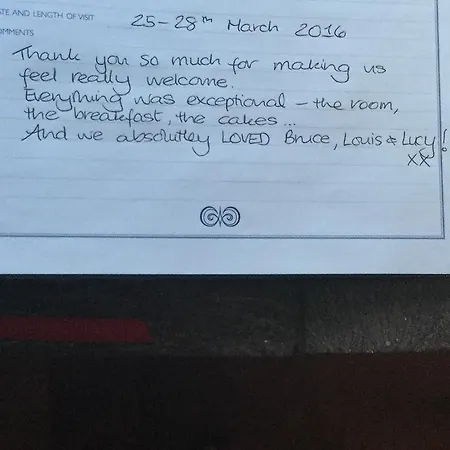 ATE AND LENGTH OF VISIT 25-28th March 2016
OMMENTS
Thank you so much for making us
feel really welcome.
Everything was exceptional - the room,
the breakfast, the cakes...
And we absolutley LOVED Bruce, Louis & Lucy!
xx